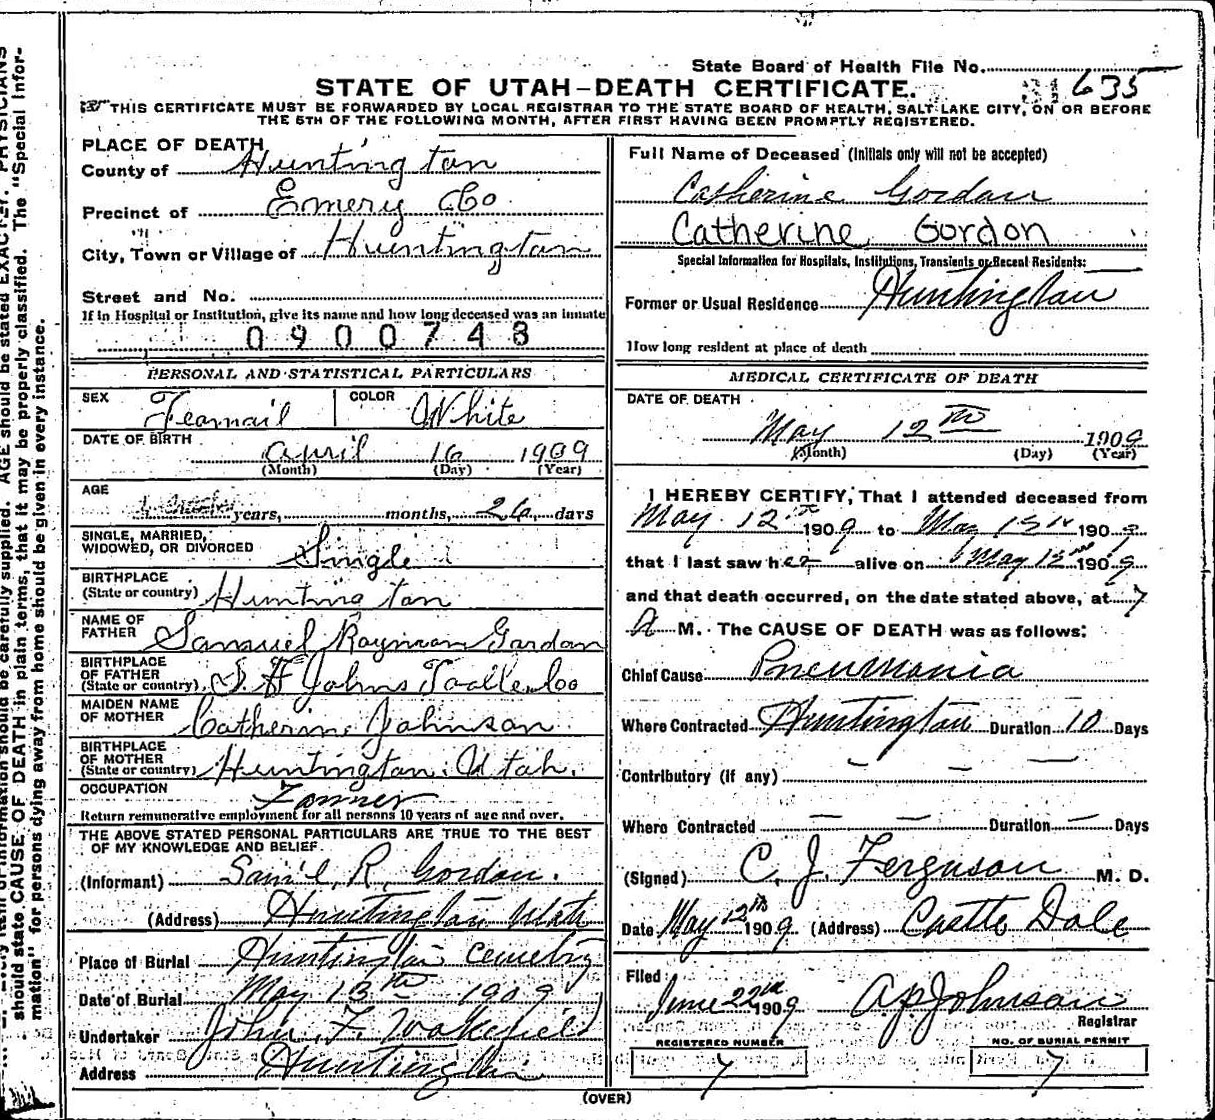 State Board of Health File No. 635
STATE OF UTAH-DEATH CERTIFICATE.
THIS CERTIFICATE MUST BE FORWARDED BY LOCAL REGISTRAR TO THE STATE BOARD OF HEALTH, SALT LAKE CITY, ON OR BEFORE
THE 5TH OF THE FOLLOWING MONTH, AFTER FIRST HAVING BEEN PROMPTLY REGISTERED.
PLACE OF DEATH
County of Huntington
Precinct of Emery Co.
City, Town or Village of Huntington
Street and No.
If in Hospital or Institution, give its name and how long deceased was an inmate
0900748
PERSONAL AND STATISTICAL PARTICULARS
SEX Feamail COLOR White
DATE OF BIRTH April 16 1909
(Month) (Day) (Year)
AGE years, months, 26 days
SINGLE, MARRIED,
WIDOWED, OR DIVORCED Single
BIRTHPLACE
(State or country) Huntington
NAME OF
FATHER Samuel Rayman Gordon
BIRTHPLACE
OF FATHER
(State or country) Johns Tooelle Co
MAIDEN NAME
OF MOTHER Catherin Johnson
BIRTHPLACE
OF MOTHER
(State or country) Huntington. Utah.
OCCUPATION
Return remunerative employment for all persons 10 years of age and over.
THE ABOVE STATED PERSONAL PARTICULARS ARE TRUE TO THE BEST
OF MY KNOWLEDGE AND BELIEF.
(Informant) Sam'l R. Gordon.
(Address) Huntington Utah
Place of Burial Huntington Cemetry
Date of Burial May 13th 1909
Undertaker John F. Wakefield
Address Huntington
Full Name of Deceased (Initials only will not be accepted)
Catherine Gordon
Catherine Gordon
Special Information for Hospitals, Institutions, Transients or Recent Residents:
Former or Usual Residence Huntington
How long resident at place of death
MEDICAL CERTIFICATE OF DEATH
DATE OF DEATH
May 12th 1909
(Month) (Day) (Year)
I HEREBY CERTIFY, That I attended deceased from
May 12th 1909 to May 1909
that I last saw her alive on May 12th 1909
and that death occurred, on the date stated above, at 7
A M. The CAUSE OF DEATH was as follows:
Chief Cause Pneumonia
Where Contracted Huntington Duration 10 Days
Contributory (if any) — — —
Where Contracted — — Duration — Days
(Signed) C. J. Ferguson M. D.
Date May 12th 1909 (Address) Castle Dale
Filed
June 22nd 1909 A. P. Johnson
Registrar
REGISTERED NUMBER
7
NO. OF BURIAL PERMIT
7
(OVER)
should state CAUSE OF DEATH in plain terms, that it may be properly classified. The "Special Infor-
mation" for persons dying away from home should be given in every instance.